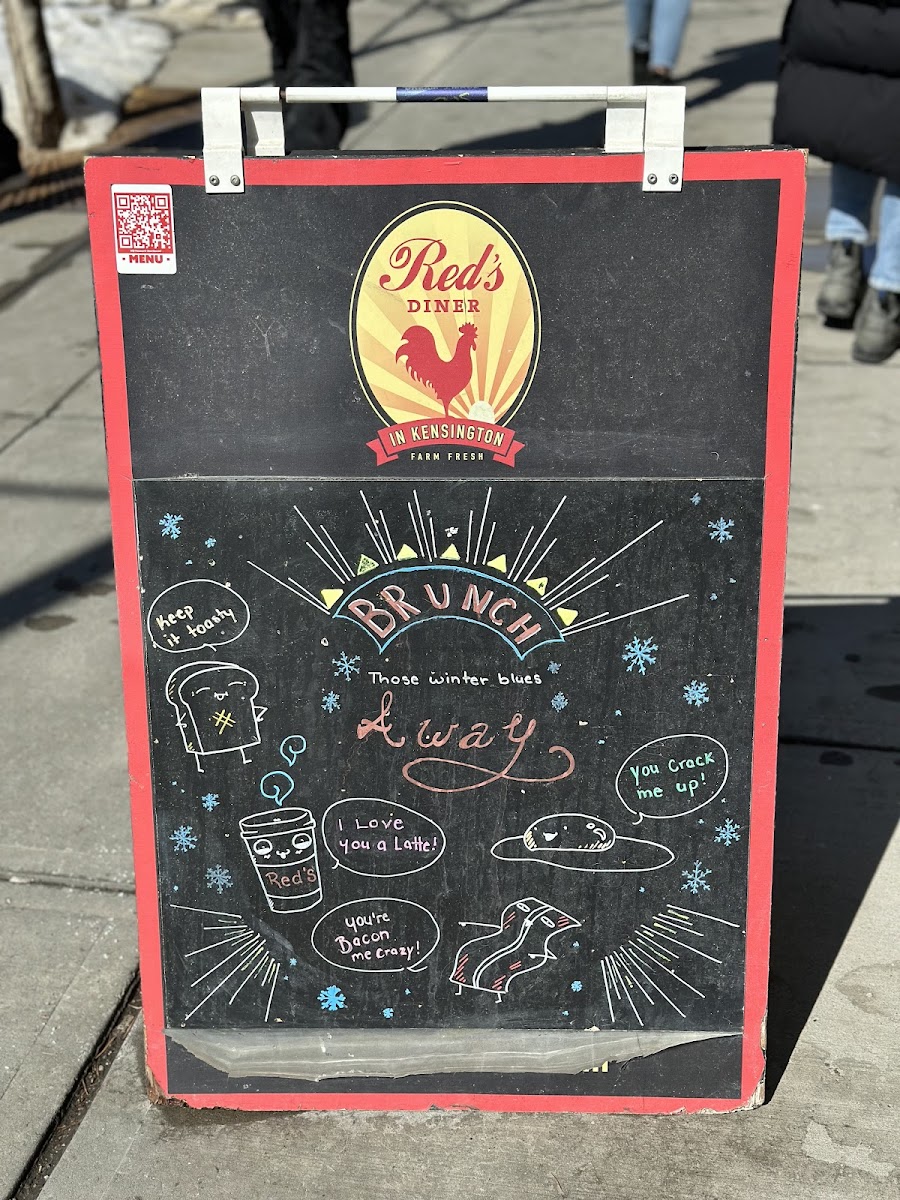 MENU
Red's
DINER
IN KENSINGTON
FARM FRESH
BRUNCH
Those winter blues
Away
Keep
it toasty
You Crack
me up!
I Love
you a Latte!
Red's
you're
Bacon
me crazy!